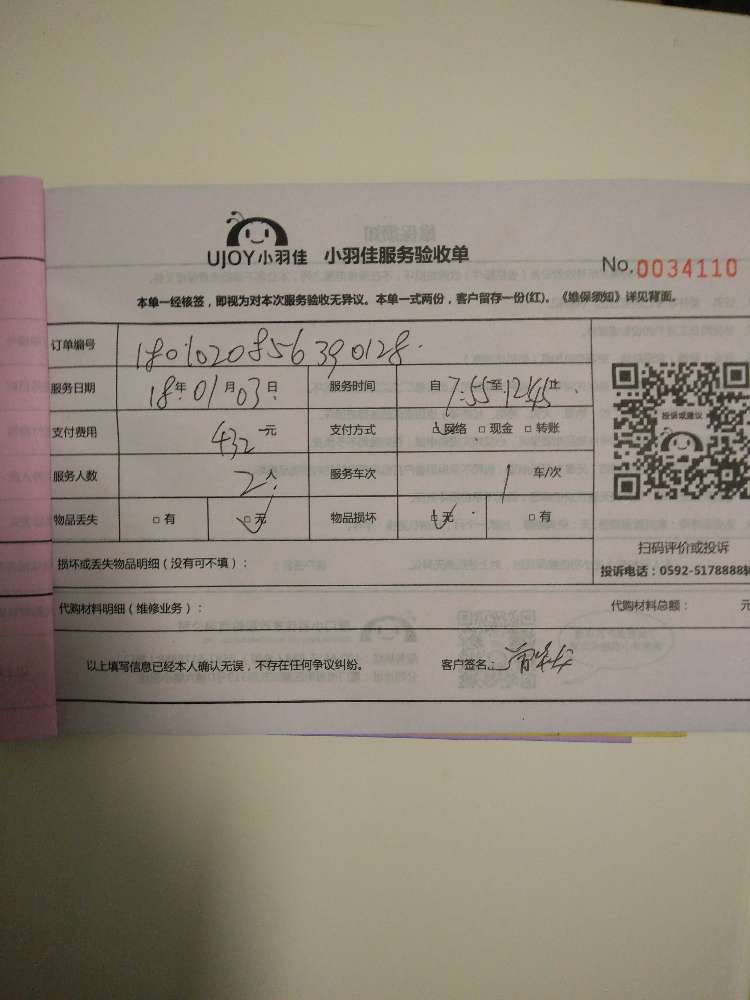 UJOY小羽佳 小羽佳服务验收单
No.0034110
本单一经核签，即视为对本次服务验收无异议。本单一式两份，客户留存一份(红)。《维保须知》详见背面。
订单编号 1801020856390128.
服务日期 18年01月03日 服务时间 自7:55至12:45止
支付费用 432元 支付方式 ☑网络 □现金 □转账
服务人数 2人 服务车次 1 车/次
物品丢失 □有 ☑无 物品损坏 ☑无 □有
投诉或建议
扫码评价或投诉
投诉电话：0592-5178888转
损坏或丢失物品明细（没有可不填）：
代购材料明细（维修业务）： 代购材料总额： 元
以上填写信息已经本人确认无误，不存在任何争议纠纷。 客户签名：